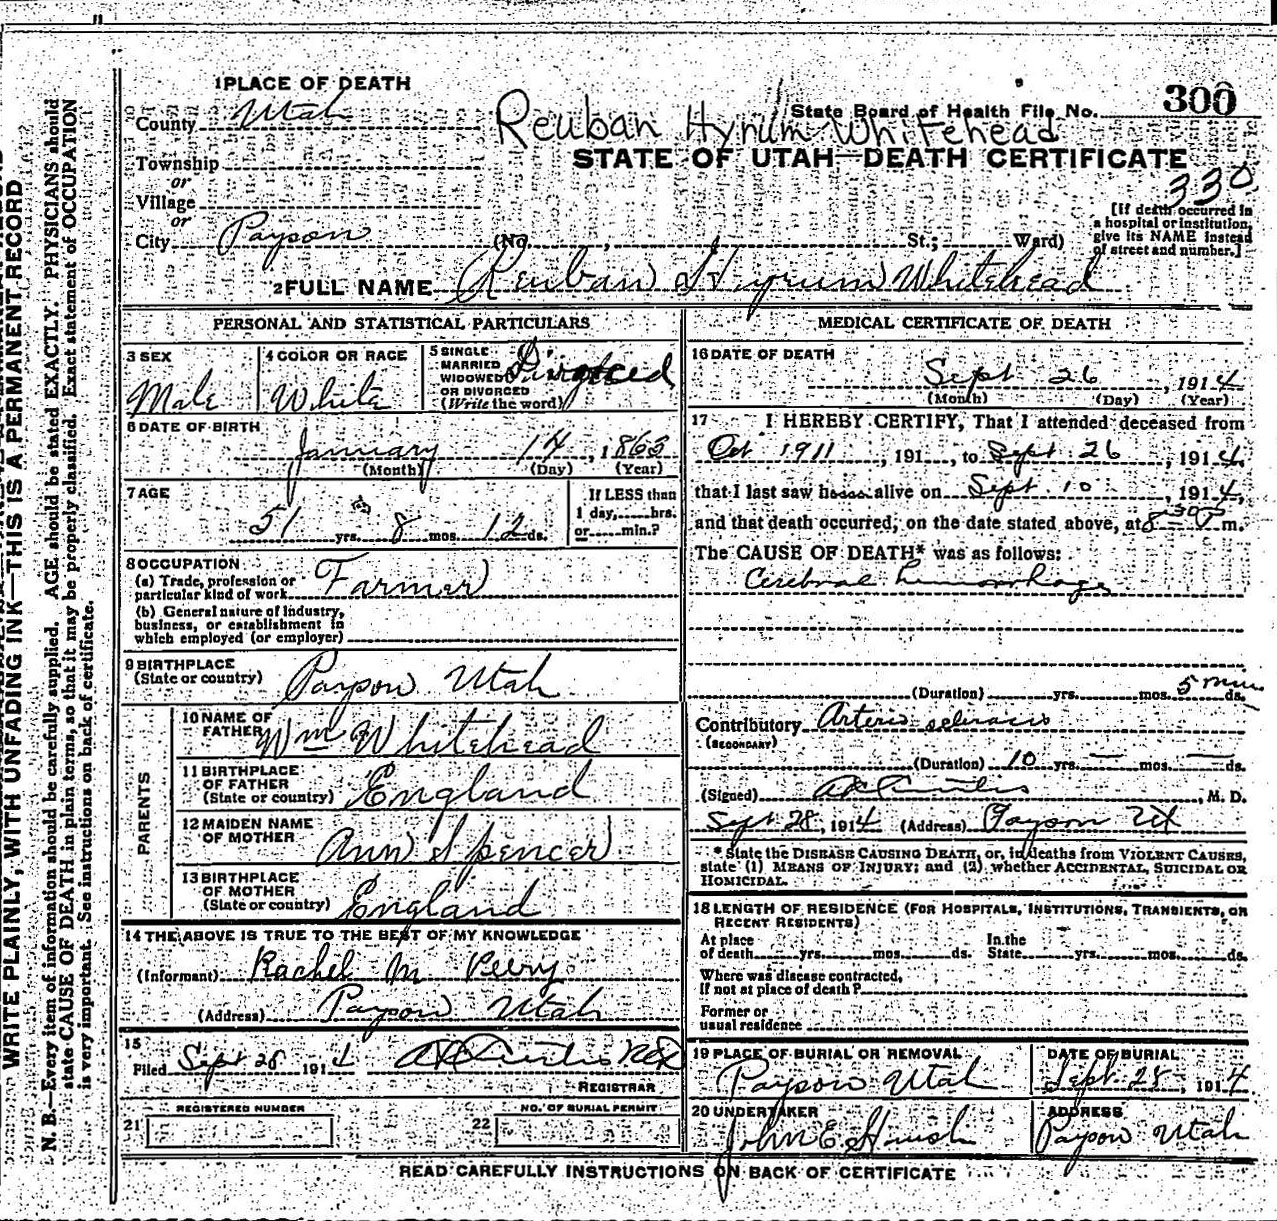 1 PLACE OF DEATH
County Utah
Township
or
Village
or
City Payson (No. , St.; Ward)
State Board of Health File No. 300
Reuban Hyrum Whitehead
STATE OF UTAH—DEATH CERTIFICATE
330
[If death occurred in
a hospital or institution,
give its NAME instead
of street and number.]
2 FULL NAME Reuban Hyrum Whitehead
PERSONAL AND STATISTICAL PARTICULARS
3 SEX
Male
4 COLOR OR RACE
White
5 SINGLE
MARRIED
WIDOWED
OR DIVORCED
(Write the word)
Divorced
6 DATE OF BIRTH
January 14, 1863
(Month) (Day) (Year)
7 AGE
51 yrs. 8 mos. 12 ds.
If LESS than
1 day, hrs.
or min.?
8 OCCUPATION
(a) Trade, profession or
particular kind of work Farmer
(b) General nature of industry,
business, or establishment in
which employed (or employer)
9 BIRTHPLACE
(State or country) Payson Utah
PARENTS
10 NAME OF
FATHER Wm Whitehead
11 BIRTHPLACE
OF FATHER
(State or country) England
12 MAIDEN NAME
OF MOTHER Ann Spencer
13 BIRTHPLACE
OF MOTHER
(State or country) England
14 THE ABOVE IS TRUE TO THE BEST OF MY KNOWLEDGE
(Informant) Rachel M Perry
(Address) Payson Utah
15
Filed Sept 28 1914 Curtis
REGISTRAR
REGISTERED NUMBER
21
NO. OF BURIAL PERMIT
22
MEDICAL CERTIFICATE OF DEATH
16 DATE OF DEATH
Sept 26, 1914
(Month) (Day) (Year)
17 I HEREBY CERTIFY, That I attended deceased from
Oct 1911, 191 , to Sept 26, 1914,
that I last saw h alive on Sept 10, 1914,
and that death occurred, on the date stated above, at 8 30 P m.
The CAUSE OF DEATH* was as follows:
Cerebral hemorrhage
(Duration) yrs. mos. 5 ds.
Contributory Arterio sclerosis
(SECONDARY)
(Duration) 10 yrs. — mos. — ds.
(Signed) Curtis, M. D.
Sept 28, 1914 (Address) Payson Ut
* State the DISEASE CAUSING DEATH, or, in deaths from VIOLENT CAUSES,
state (1) MEANS OF INJURY; and (2) whether ACCIDENTAL, SUICIDAL OR
HOMICIDAL.
18 LENGTH OF RESIDENCE (FOR HOSPITALS, INSTITUTIONS, TRANSIENTS, OR
RECENT RESIDENTS)
At place
of death yrs. mos. ds.
In the
State yrs. mos. ds.
Where was disease contracted,
if not at place of death?
Former or
usual residence
19 PLACE OF BURIAL OR REMOVAL
Payson Utah
DATE OF BURIAL
Sept. 28, 1914
20 UNDERTAKER
John E
ADDRESS
Payson Utah
READ CAREFULLY INSTRUCTIONS ON BACK OF CERTIFICATE
WRITE PLAINLY, WITH UNFADING INK—THIS IS A PERMANENT RECORD
N. B.—Every item of information should be carefully supplied. AGE should be stated EXACTLY. PHYSICIANS should
state CAUSE OF DEATH in plain terms, so that it may be properly classified. Exact statement of OCCUPATION
is very important. See instructions on back of certificate.